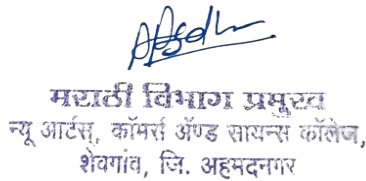 मराठी विभाग प्रमुख
न्यू आर्टस्, कॉमर्स ॲण्ड सायन्स कॉलेज,
शेवगांव, जि. अहमदनगर